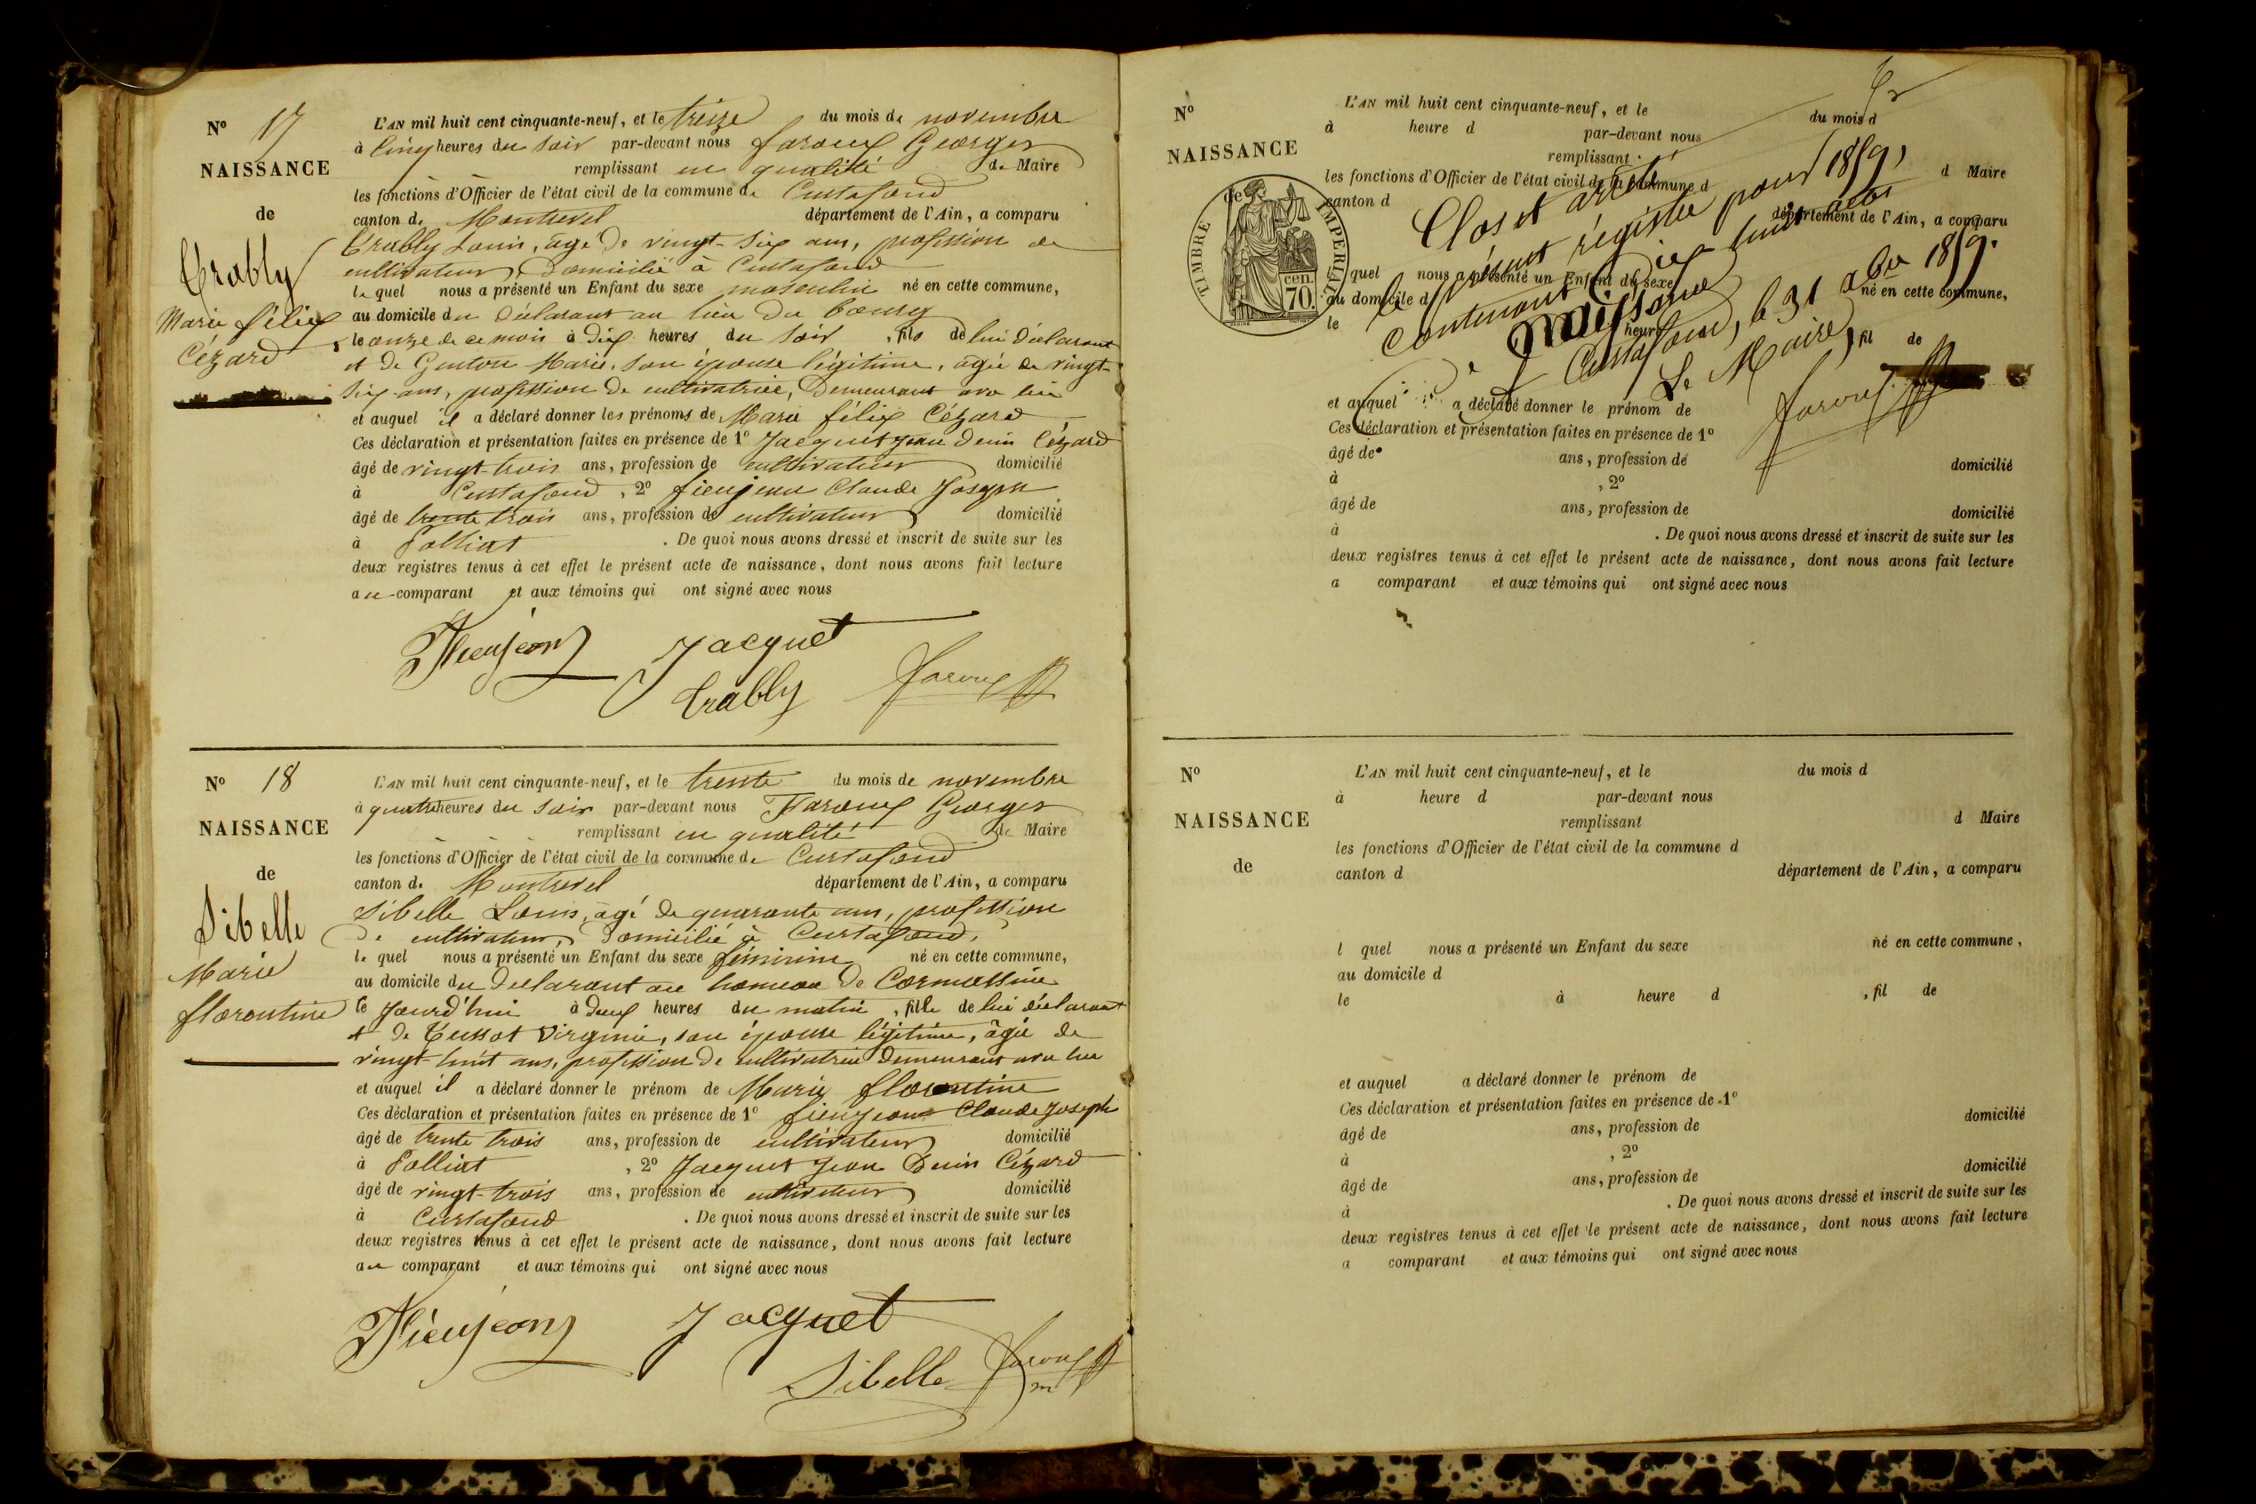 N° 17
NAISSANCE
de
Crably
Marie félix
Cézard
L'AN mil huit cent cinquante-neuf, et le treize du mois de novembre
à Cinq heures du soir par-devant nous faroux Georges
remplissant en qualité de Maire
les fonctions d'Officier de l'état civil de la commune de Curtafond
canton de Montrevel département de l'Ain, a comparu
Crably Louis, âgé de vingt-six ans, profession de
cultivateur, domicilié à Curtafond
le quel nous a présenté un Enfant du sexe masculin né en cette commune,
au domicile du déclarant au lieu du bourg
le onze de ce mois à dix heures du soir, fils de lui déclarant
et de Marie, son épouse légitime, agée de vingt-
six ans, profession de cultivatrice, demeurant avec lui
et auquel il a déclaré donner les prénoms de Marie félix Cézard
Ces déclaration et présentation faites en présence de 1° Jacquet Jean Denis Cézard
âgé de vingt-trois ans, profession de cultivateur domicilié
à Curtafond, 2° fieujean Claude Joseph
âgé de trente trois ans, profession de cultivateur domicilié
à Polliat. De quoi nous avons dressé et inscrit de suite sur les
deux registres tenus à cet effet le présent acte de naissance, dont nous avons fait lecture
au comparant et aux témoins qui ont signé avec nous
Fieujean Jacquet
Crably faroux
N° 18
NAISSANCE
de
Sibelle
Marie
florentine
L'AN mil huit cent cinquante-neuf, et le trente du mois de novembre
à quatre heures du soir par-devant nous Faroux Georges
remplissant en qualité de Maire
les fonctions d'Officier de l'état civil de la commune de Curtafond
canton de Montrevel département de l'Ain, a comparu
Sibelle Louis, âgé de quarante ans, profession
de cultivateur, domicilié à Curtafond,
le quel nous a présenté un Enfant du sexe féminin né en cette commune,
au domicile du déclarant au hameau de
le jourd'hui à deux heures du matin, fille de lui déclarant
et de Virginie, son épouse légitime, âgée de
vingt-huit ans, profession de cultivatrice demeurant avec lui
et auquel il a déclaré donner le prénom de Marie florentine
Ces déclaration et présentation faites en présence de 1° fieujean Claude Joseph
âgé de trente trois ans, profession de cultivateur domicilié
à Polliat, 2° Jacquet Jean Denis Cézard
âgé de vingt-trois ans, profession de cultivateur domicilié
à Curtafond. De quoi nous avons dressé et inscrit de suite sur les
deux registres tenus à cet effet le présent acte de naissance, dont nous avons fait lecture
au comparant et aux témoins qui ont signé avec nous
Fieujean Jacquet
Sibelle faroux
N°
NAISSANCE
de
TIMBRE IMPERIAL
70 cen.
L'AN mil huit cent cinquante-neuf, et le du mois d
à heure d par-devant nous
remplissant d Maire
les fonctions d'Officier de l'état civil de la commune d
canton d département de l'Ain, a comparu
l quel nous a présenté un Enfant du sexe né en cette commune,
au domicile d
le à heure d, fil de
Clos et arrêté
le présent régistre pour 1859,
Contenant Dix huit actes
de Naissance
Curtafond, le 31 Xbre 1859.
Le Maire,
faroux
et auquel a déclaré donner le prénom de
Ces déclaration et présentation faites en présence de 1°
âgé de ans, profession de domicilié
à, 2°
âgé de ans, profession de domicilié
à. De quoi nous avons dressé et inscrit de suite sur les
deux registres tenus à cet effet le présent acte de naissance, dont nous avons fait lecture
a comparant et aux témoins qui ont signé avec nous
N°
NAISSANCE
de
L'AN mil huit cent cinquante-neuf, et le du mois d
à heure d par-devant nous
remplissant d Maire
les fonctions d'Officier de l'état civil de la commune d
canton d département de l'Ain, a comparu
l quel nous a présenté un Enfant du sexe né en cette commune,
au domicile d
le à heure d, fil de
et auquel a déclaré donner le prénom de
Ces déclaration et présentation faites en présence de 1°
âgé de ans, profession de domicilié
à, 2°
âgé de ans, profession de domicilié
à. De quoi nous avons dressé et inscrit de suite sur les
deux registres tenus à cet effet le présent acte de naissance, dont nous avons fait lecture
a comparant et aux témoins qui ont signé avec nous